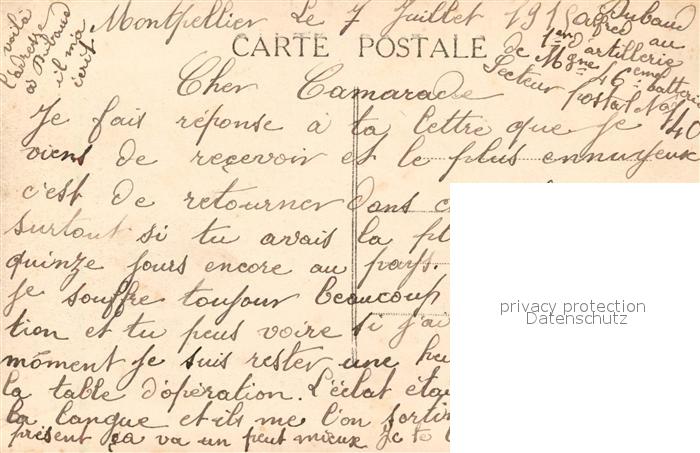 voilà
l'adresse
a Dubaud
il m'a
écrit
Montpellier Le 7 Juillet 1915
Dubaud
au
1er artillerie
de Mgne 46eme batterie
Secteur postal No 140
CARTE POSTALE
Cher Camarade
Je fais réponse à ta lettre que je
viens de recevoir et le plus ennuyeux
c'est de retourner dans c
surtout si tu avais la pl
quinze jours encore au pays.
je souffre toujour beaucoup
tion et tu peus voire si j'ai
moment je suis rester une he
la table d'opération. L'éclat étai
la langue et ils me l'on sortir
présent ça va un peut mieux je te
privacy protection
Datenschutz